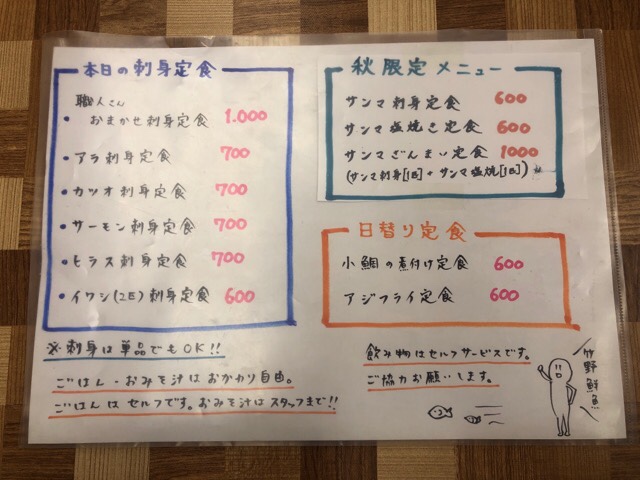 本日の刺身定食
職人さん
・おまかせ刺身定食 1.000
・アラ刺身定食 700
・カツオ刺身定食 700
・サーモン刺身定食 700
・ヒラス刺身定食 700
・イワシ(2匹)刺身定食 600
※刺身は単品でもOK!!
ごはん・おみそ汁はおかわり自由。
ごはんはセルフです。おみそ汁はスタッフまで!!
秋限定メニュー
サンマ刺身定食 600
サンマ塩焼き定食 600
サンマざんまい定食 1000
(サンマ刺身[1匹]+サンマ塩焼[1匹])
日替り定食
小鯛の煮付け定食 600
アジフライ定食 600
飲み物はセルフサービスです。
ご協力お願いします。
竹野鮮魚